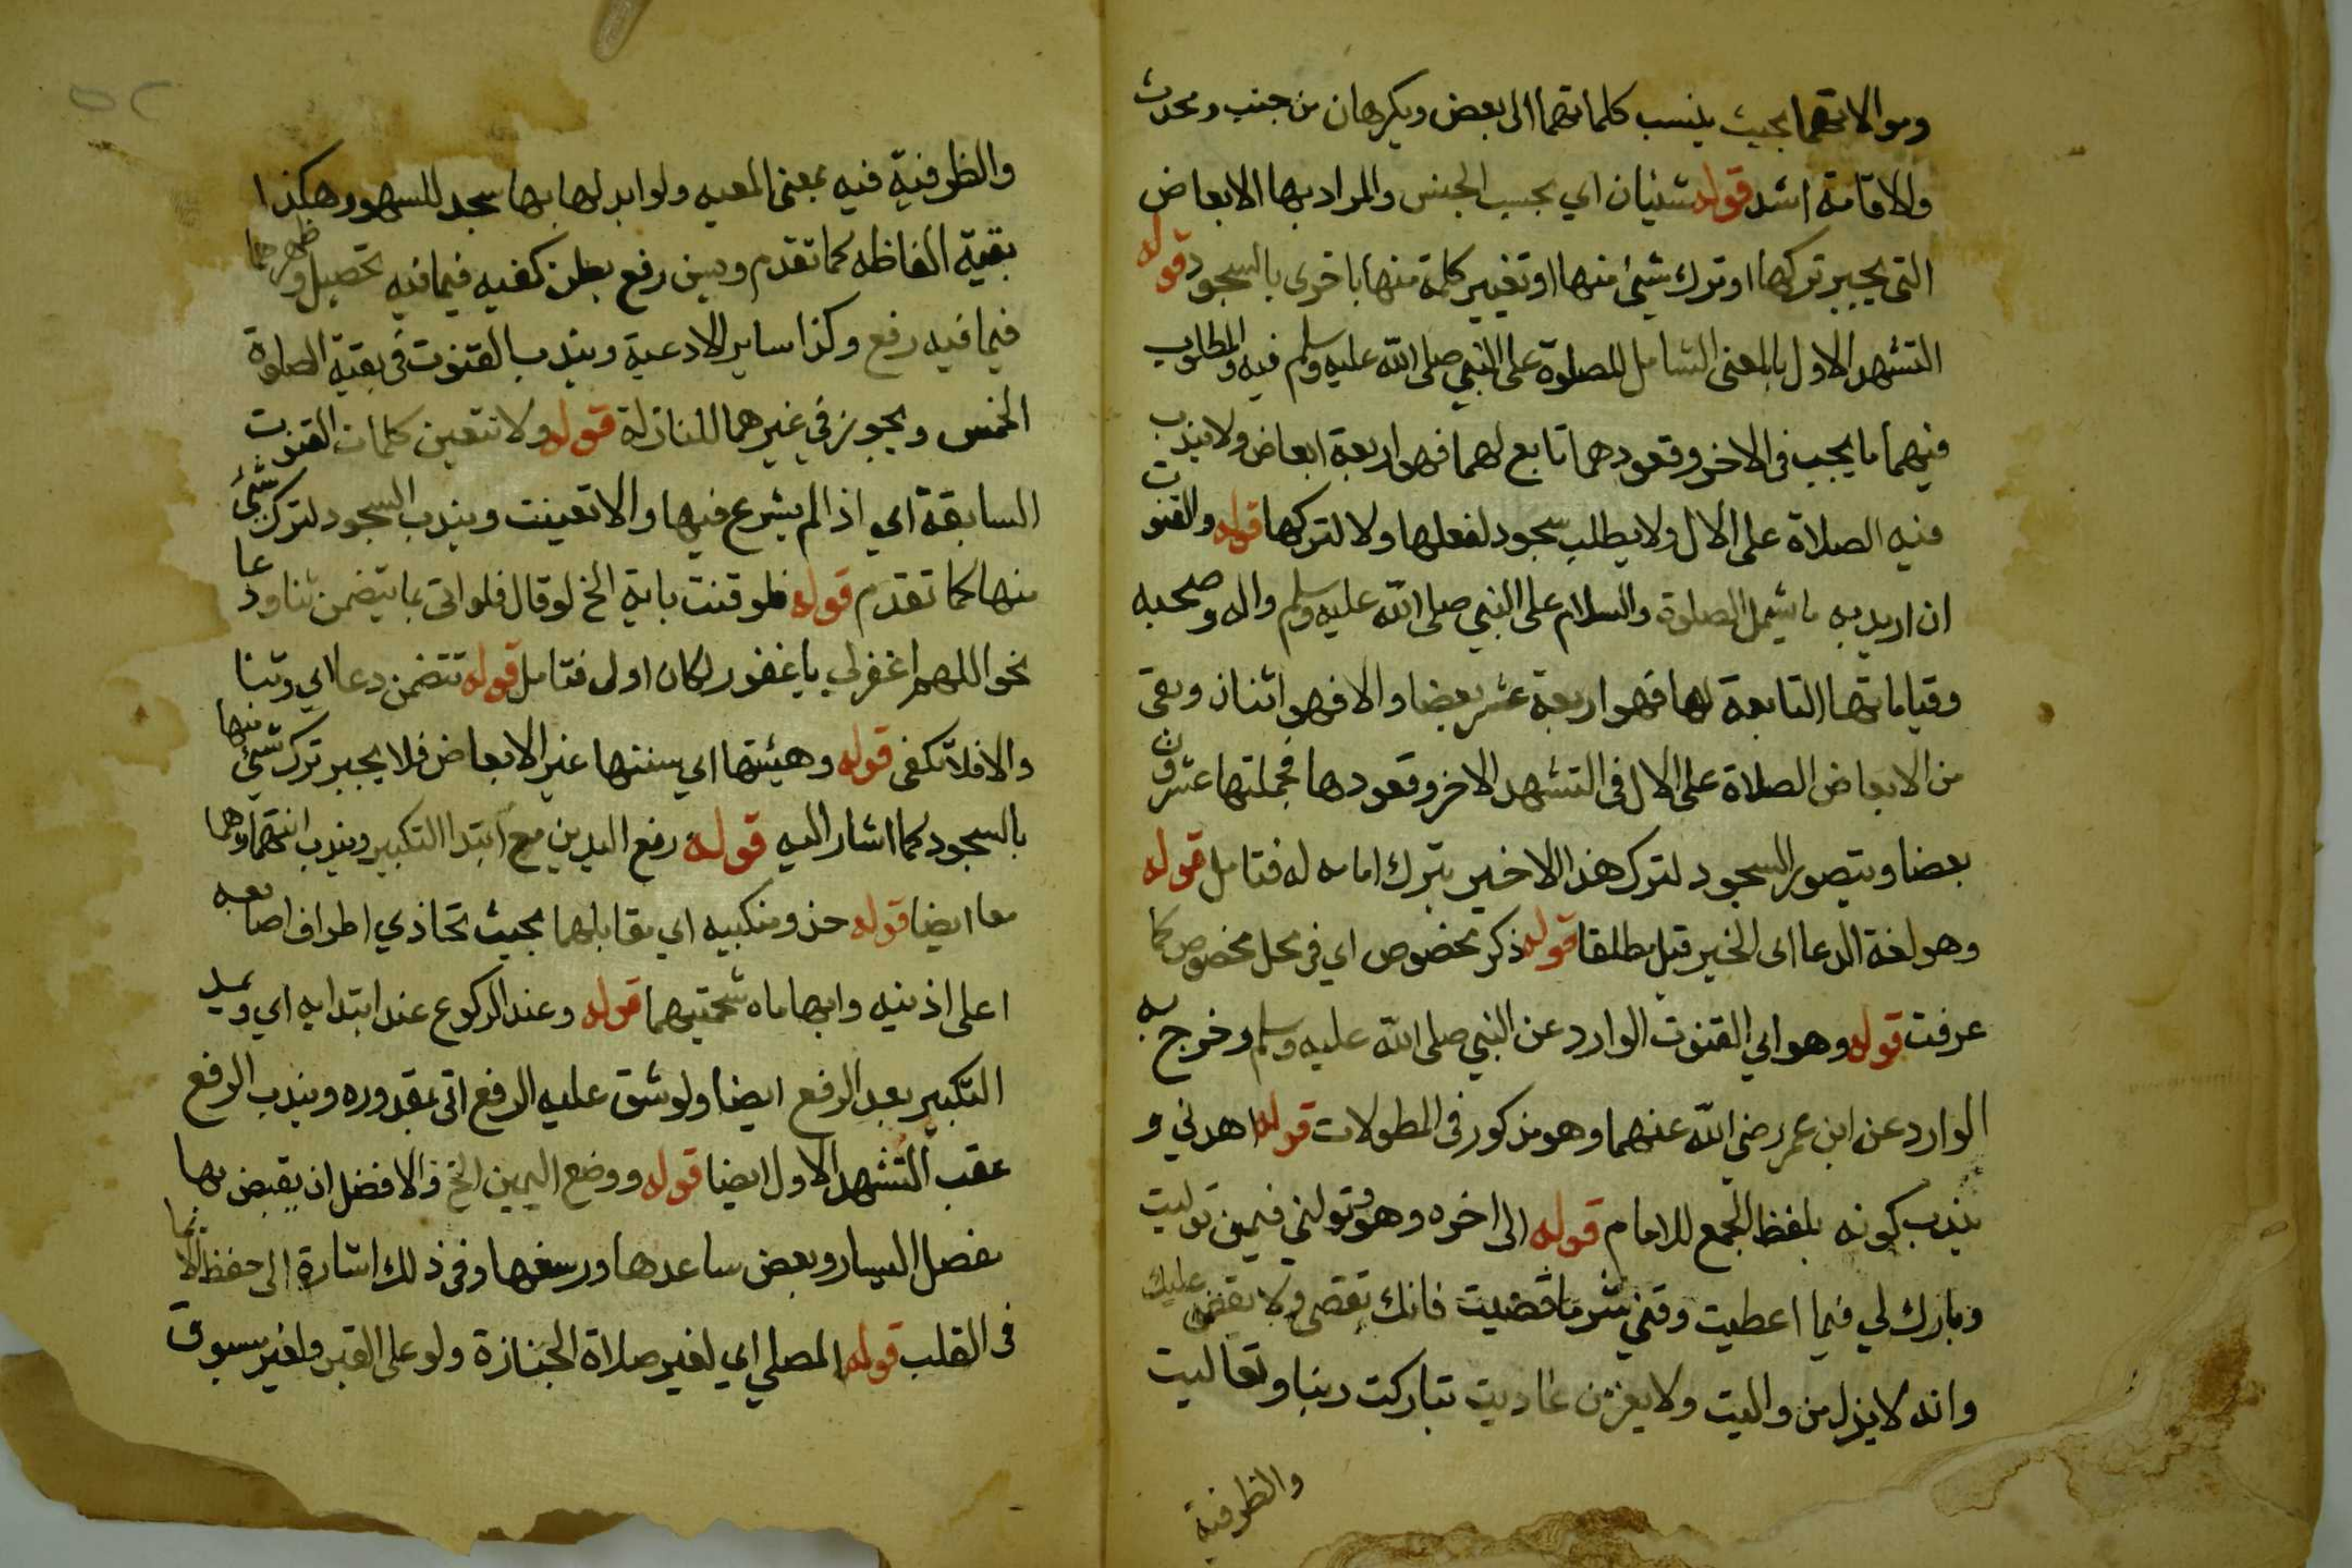 وموالاتهما بحيث ينسب كلماتهما الى بعض ويكرهان من جنب ومحدث
والاقامة اشد قوله شيئان اي بحسب الجنس والمراد بها الابعاض
التى يجبر تركها او ترك شئ منها او تغيير كلمة منها باخرى بالسجود قوله
التشهد الاول بالمعنى الشامل للصلوة على النبي صلى الله عليه وسلم فيه والمطلوب
فيهما ما يجب فى الاخر وقعودهما تابع لهما فهو اربعة ابعاض ولا يندب
فيه الصلاة على الال ولا يطلب سجود لفعلها ولا لتركها قوله والقنوت
ان اريد به ما يشمل الصلوة والسلام على النبي صلى الله عليه وسلم واله وصحبه
وقياماتها التابعة لها فهو اربعة عشر بعضا والا فهو اثنان وبقى
من الابعاض الصلاة على الال فى التشهد الاخر وقعودها فجملتها عشرون
بعضا ويتصور السجود لترك هذا الاخير بترك امامه له فتامل قوله
وهو لغة الدعا الى الخير قيل مطلقا قوله ذكر مخصوص اي فى محل مخصوص كما
عرفت قوله وهو اي القنوت الوارد عن النبي صلى الله عليه وسلم وخرج به
الوارد عن ابن عمر رضي الله عنهما وهو مذكور فى المطولات قوله اهدني و
يندب كونه بلفظ الجمع للامام قوله الى اخره وهو وتولني فيمن توليت
وبارك لي فيما اعطيت وقني شر ما قضيت فانك تقضى ولا يقضى عليك
وانه لا يذل من واليت ولا يعز من عاديت تباركت ربنا وتعاليت
والظرفية
٥٢
والظرفية فيه بمعنى المعيه ولو ابدلها بها سجد للسهو وهكذا
بقية الفاظه كما تقدم ويسن رفع بطن كفيه فيما فيه تحصيل وظهرهما
فيما فيه رفع وكذا ساير الادعية ويندب القنوت فى بقية الصلوة
الخمس ويجوز في غيرهما للنازلة قوله ولا تتعين كلمات القنوت
السابقة اي اذا لم يشرع فيها والا تعينت ويندب السجود لترك شئ
منها كما تقدم قوله فلو قنت باية الخ لو قال فلو اتى بما يتضمن ثنا ودعا
نحو اللهم اغفر لي يا غفور لكان اولى فتامل قوله تتضمن دعا اي وثنا
والا فلا تكفى قوله وهيئتها اي سننها غير الابعاض فلا يجبر ترك شئ منها
بالسجود كما اشار اليه قوله رفع اليدين مع ابتدا التكبير ويندب انتهاوهما
معا ايضا قوله حذو منكبيه اي مقابلهما بحيث تحاذي اطراف اصابعه
اعلى اذنيه وابهاماه شحمتيهما قوله وعند الركوع عند ابتدايه اي ويمد
التكبير بعد الرفع ايضا ولو شق عليه الرفع اتى بمقدوره ويندب الرفع
عقب التشهد الاول ايضا قوله ووضع اليمين الخ والافضل ان يقبض بها
مفصل اليسار وبعض ساعدها ورسغها وفى ذلك اشارة الى حفظ الايمان
فى القلب قوله المصلي اي لغير صلاة الجنازة ولو على القبر ولغير مسبوق